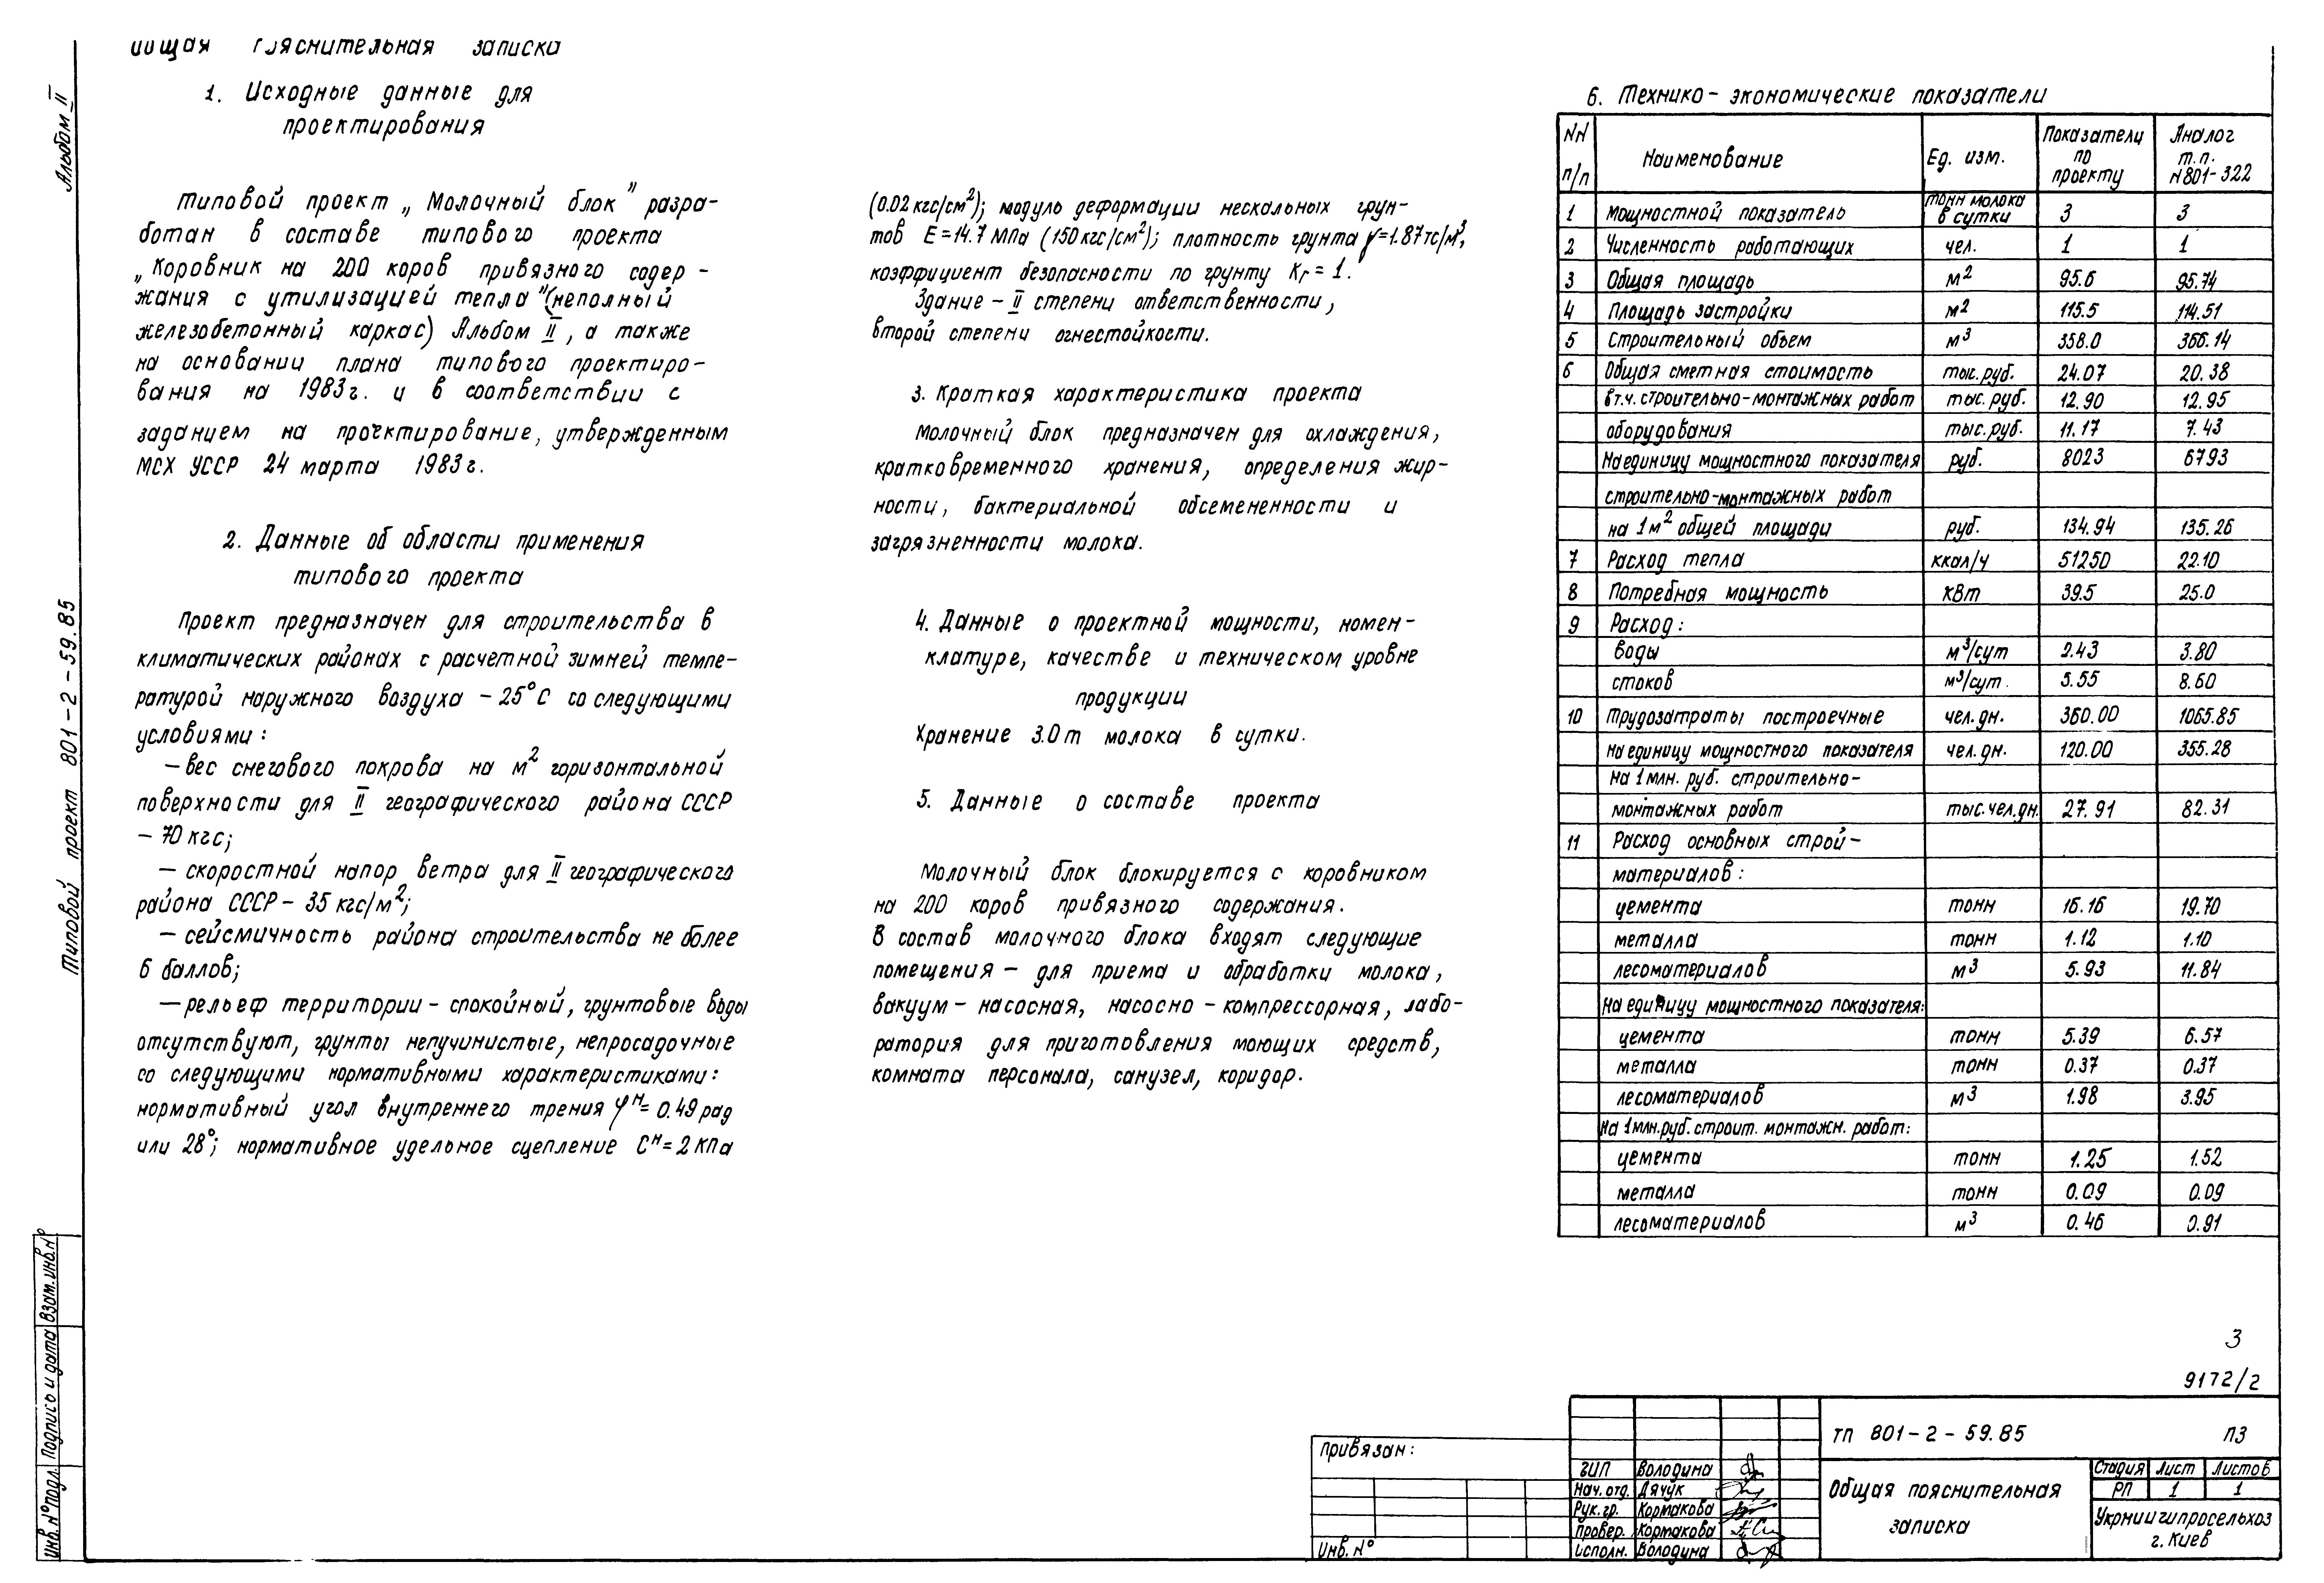 Общая пояснительная записка
1. Исходные данные для
проектирования
Типовой проект „Молочный блок" разра-
ботан в составе типового проекта
„Коровник на 200 коров привязного содер-
жания с утилизацией тепла" (неполный
железобетонный каркас) Альбом II, а также
на основании плана типового проектиро-
вания на 1983г. и в соответствии с
заданием на проектирование, утвержденным
МСХ УССР 24 марта 1983г.
2. Данные об области применения
типового проекта
Проект предназначен для строительства в
климатических районах с расчетной зимней темпе-
ратурой наружного воздуха -25°С со следующими
условиями:
— вес снегового покрова на м² горизонтальной
поверхности для II географического района СССР
— 70 кгс;
— скоростной напор ветра для II географического
района СССР - 35 кгс/м²;
— сейсмичность района строительства не более
6 баллов;
— рельеф территории - спокойный, грунтовые воды
отсутствуют, грунты непучинистые, непросадочные
со следующими нормативными характеристиками:
нормативный угол внутреннего трения φᴴ= 0.49 рад
или 28°; нормативное удельное сцепление Сᴴ= 2 КПа
(0.02 кгс/см²); модуль деформации нескальных грун-
тов Е=14.7 МПа (150 кгс/см²); плотность грунта γ=1.87тс/м³,
коэффициент безопасности по грунту Кг = 1.
Здание - II степени ответственности,
второй степени огнестойкости.
3. Краткая характеристика проекта
Молочный блок предназначен для охлаждения,
кратковременного хранения, определения жир-
ности, бактериальной обсемененности и
загрязненности молока.
4. Данные о проектной мощности, номен-
клатуре, качестве и техническом уровне
продукции
Хранение 3.0т молока в сутки.
5. Данные о составе проекта
Молочный блок блокируется с коровником
на 200 коров привязного содержания.
В состав молочного блока входят следующие
помещения - для приема и обработки молока,
вакуум - насосная, насосно - компрессорная, лабо-
ратория для приготовления моющих средств,
комната персонала, санузел, коридор.
6. Технико - экономические показатели
NN п/п Наименование Ед. изм. Показатели по проекту Аналог т.п. N801-322
1 Мощностной показатель тонн молока в сутки 3 3
2 Численность работающих чел. 1 1
3 Общая площадь м² 95.6 95.74
4 Площадь застройки м² 115.5 114.51
5 Строительный объем м³ 358.0 366.14
6 Общая сметная стоимость тыс.руб. 24.07 20.38
в т.ч. строительно-монтажных работ тыс.руб. 12.90 12.95
оборудования тыс.руб. 11.17 7.43
На единицу мощностного показателя руб. 8023 6793
строительно-монтажных работ
на 1м² общей площади руб. 134.94 135.26
7 Расход тепла ккал/ч 51250 22.10
8 Потребная мощность кВт 39.5 25.0
9 Расход:
воды м³/сут 2.43 3.80
стоков м³/сут. 5.55 8.60
10 Трудозатраты построечные чел.дн. 360.00 1065.85
на единицу мощностного показателя чел.дн. 120.00 355.28
на 1 млн. руб. строительно-
монтажных работ тыс.чел.дн. 27.91 82.31
11 Расход основных строй-
материалов:
цемента тонн 16.16 19.70
металла тонн 1.12 1.10
лесоматериалов м³ 5.93 11.84
На единицу мощностного показателя:
цемента тонн 5.39 6.57
металла тонн 0.37 0.37
лесоматериалов м³ 1.98 3.95
На 1млн.руб. строит. монтажн. работ:
цемента тонн 1.25 1.52
металла тонн 0.09 0.09
лесоматериалов м³ 0.46 0.91
Альбом II
Типовой проект 801-2-59.85
Инв.N°подл. Подпись и дата Взам.инв.N°
3
9172/2
Привязан:
Инв. N°
ГИП Володина
Нач. отд. Дячук
Рук. гр. Кортакова
Провер. Кортакова
Исполн. Володина
ТП 801-2-59.85 ПЗ
Общая пояснительная
записка
Стадия Лист Листов
РП 1 1
Укрниигипросельхоз
г. Киев